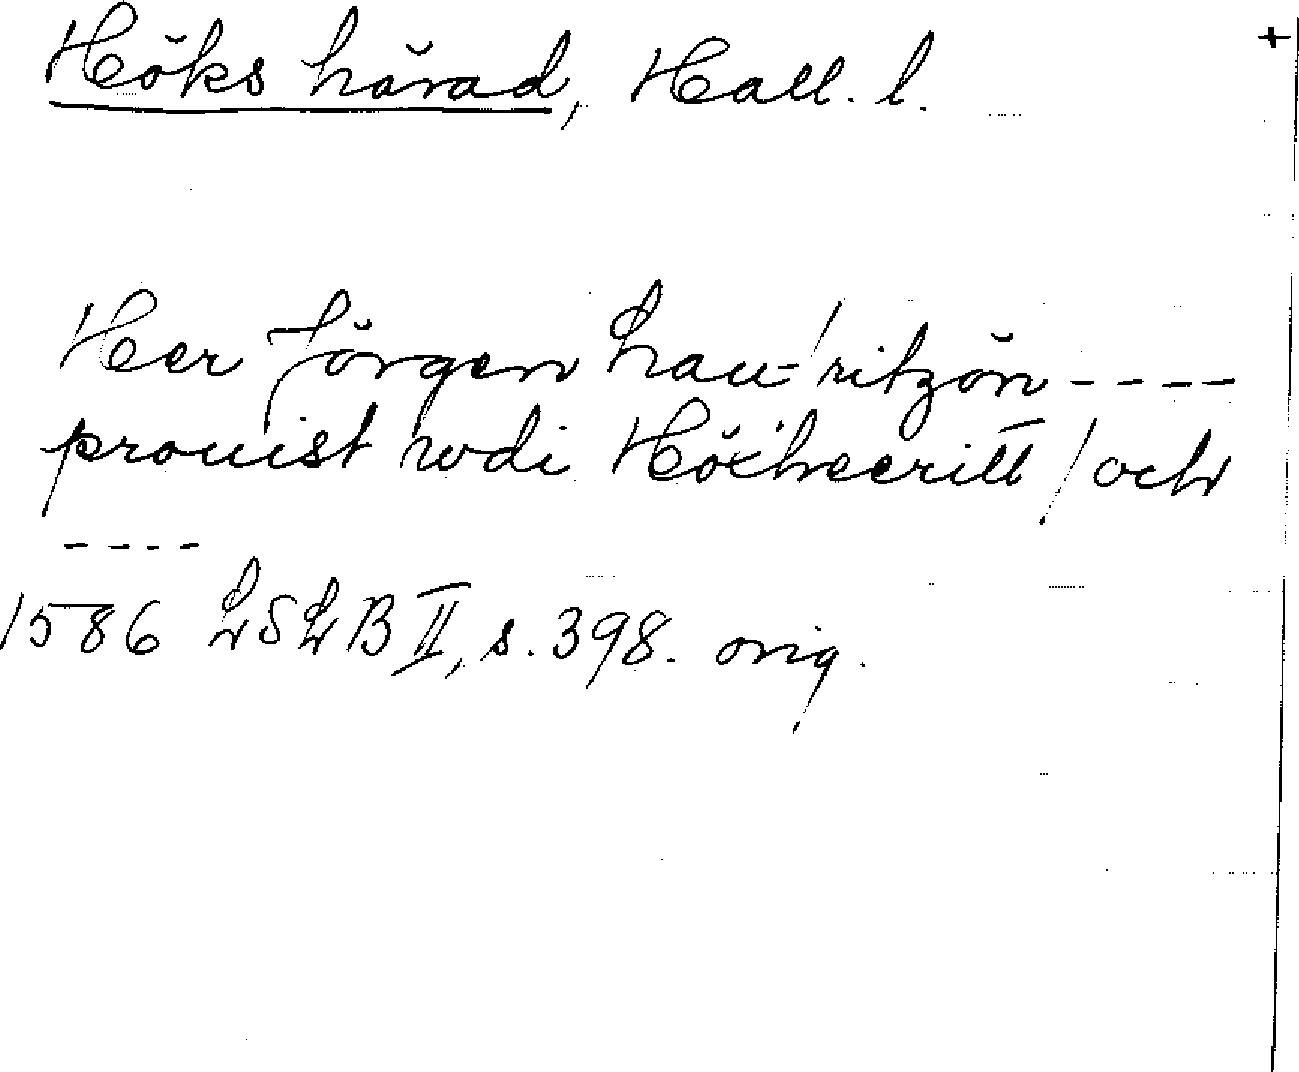 Höks härad, Hall. l. +
Her Jörgen Lau=/ritzön ----
prouist wdi Höxheeritt / och
----
1586 LSLB II, s. 398. orig.